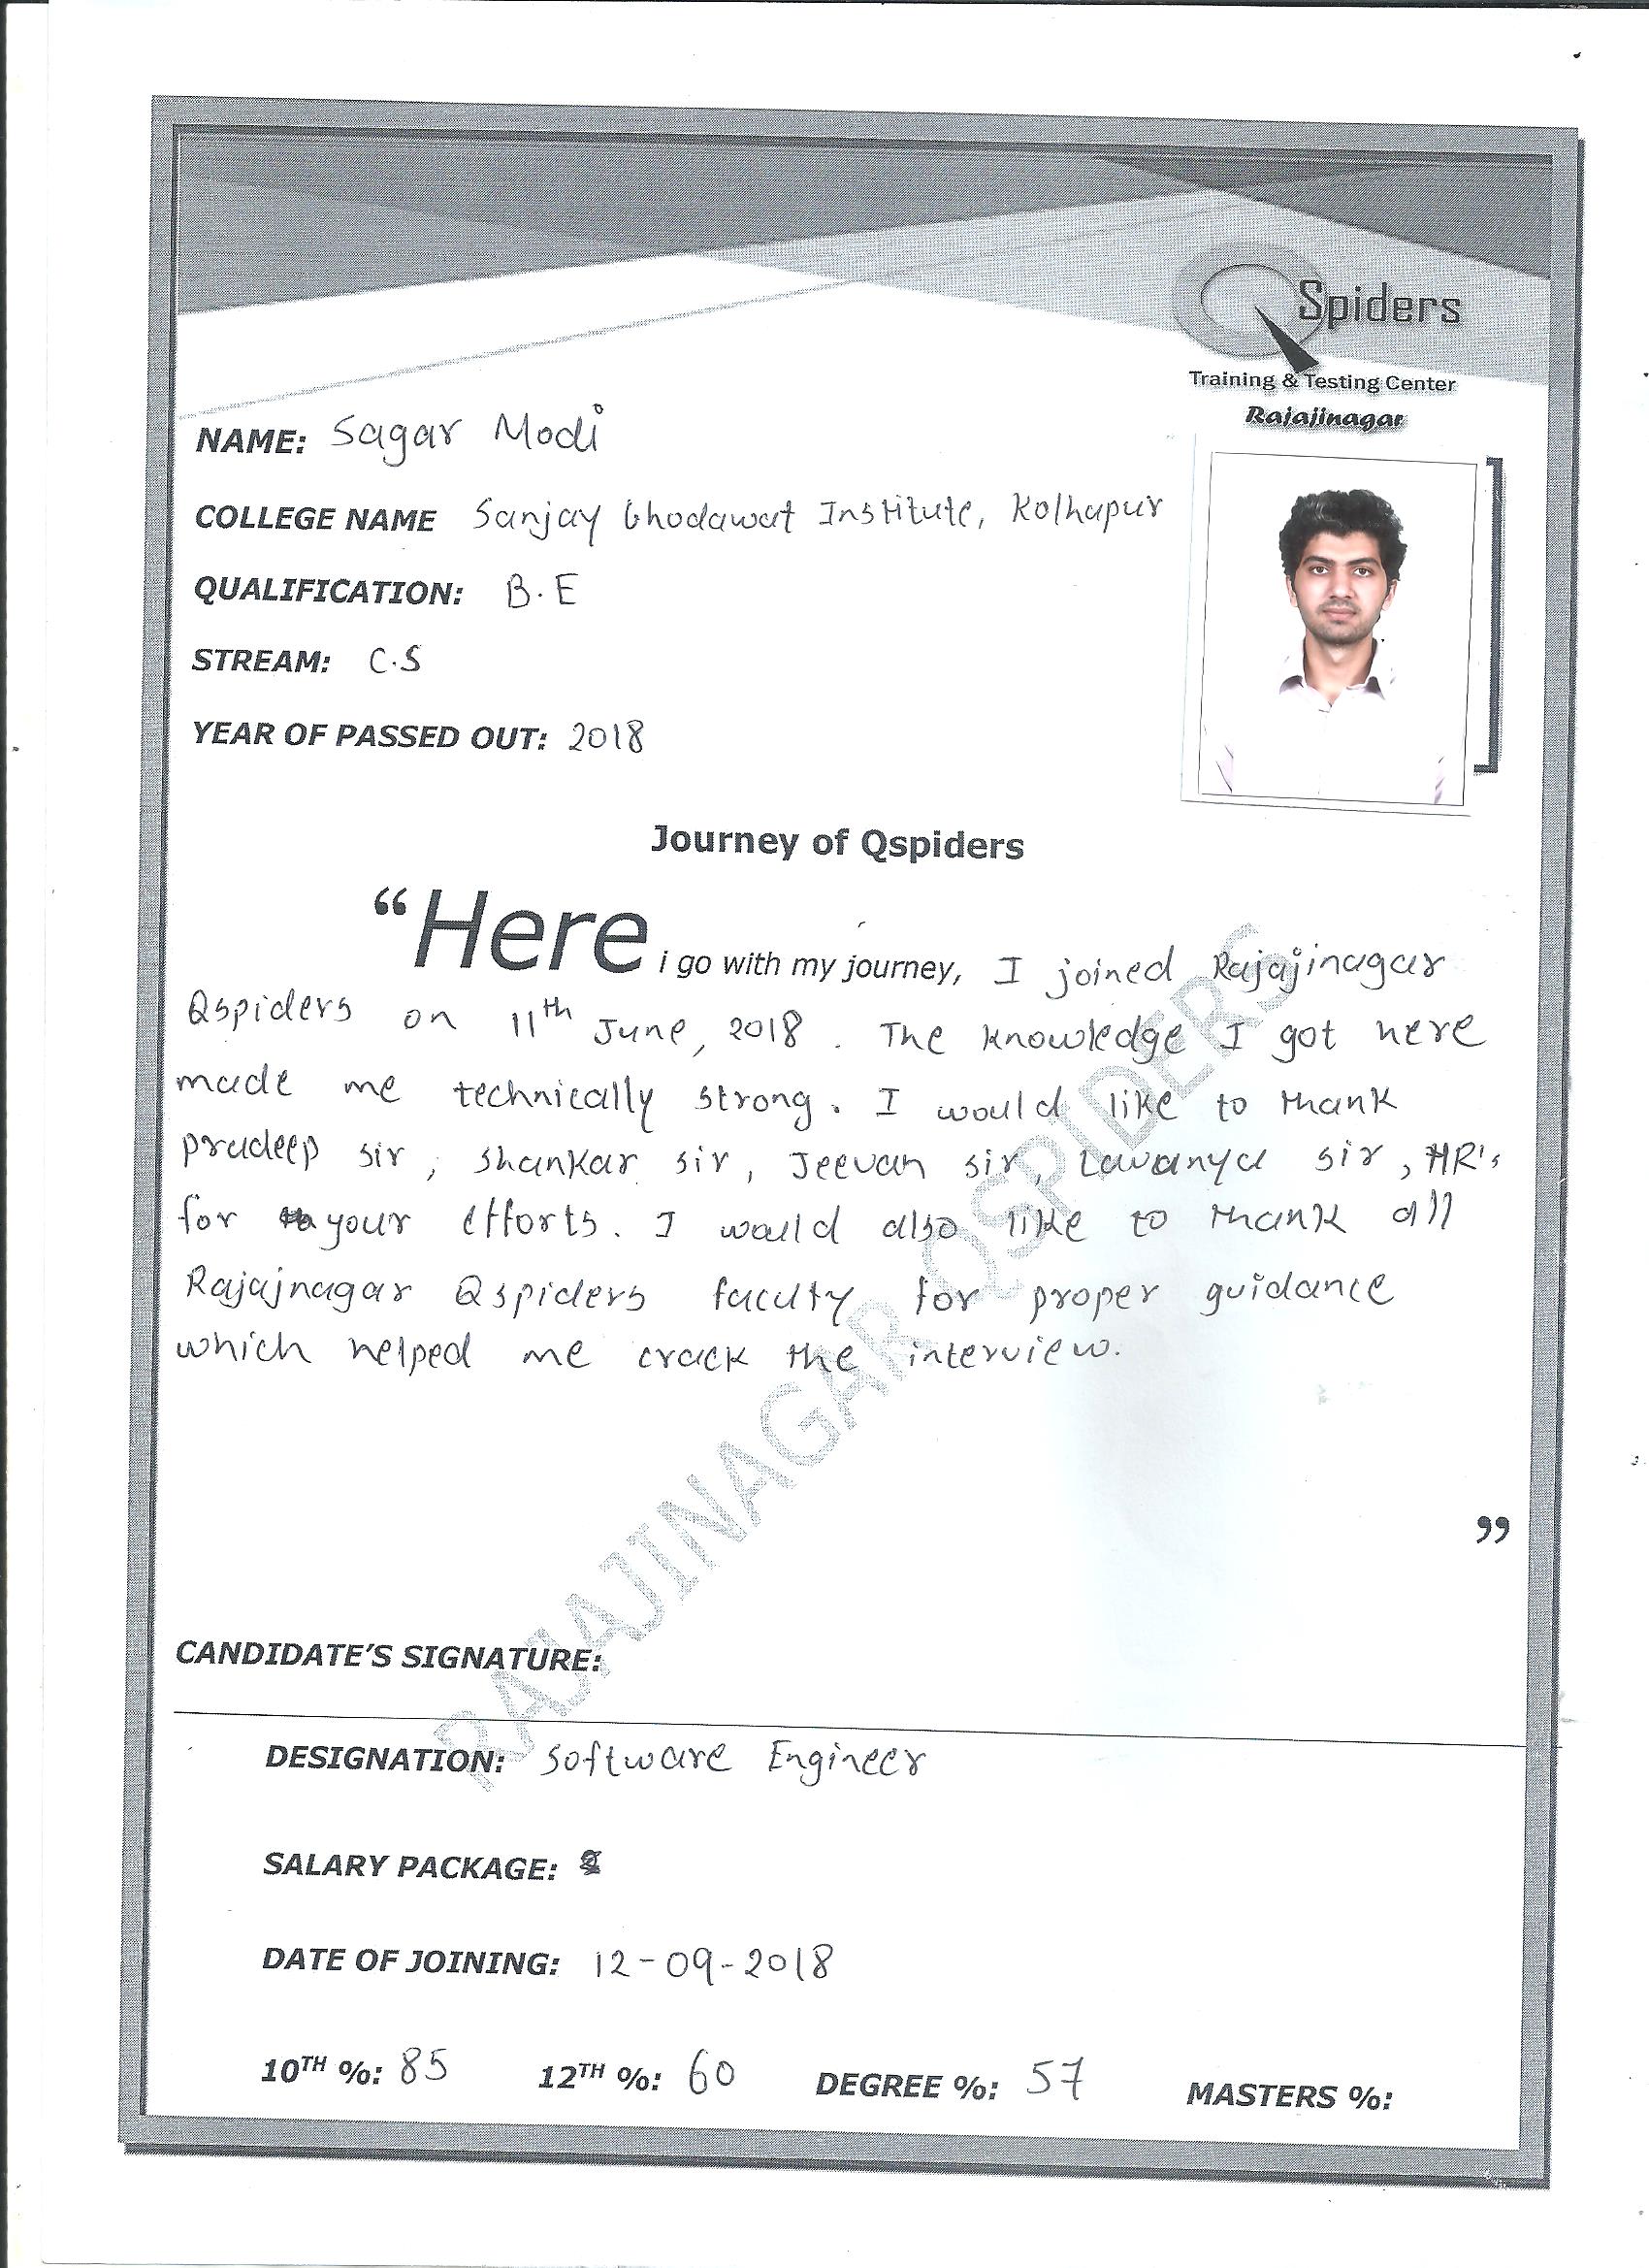 QSpiders
Training & Testing Center
Rajajinagar
NAME: Sagar Modi
COLLEGE NAME Sanjay Ghodawat Institute, Kolhapur
QUALIFICATION: B.E
STREAM: C.S
YEAR OF PASSED OUT: 2018
Journey of Qspiders
“Here i go with my journey, I joined Rajajinagar
Qspiders on 11th June, 2018. The knowledge I got here
made me technically strong. I would like to thank
pradeep sir, shankar sir, Jeevan sir, Lavanya sir, HR's
for your efforts. I would also like to thank all
Rajajnagar Qspiders faculty for proper guidance
which helped me crack the interview.
”
RAJAJINAGAR QSPIDERS
CANDIDATE’S SIGNATURE:
DESIGNATION: Software Engineer
SALARY PACKAGE:
DATE OF JOINING: 12-09-2018
10TH %: 85 12TH %: 60 DEGREE %: 57 MASTERS %: